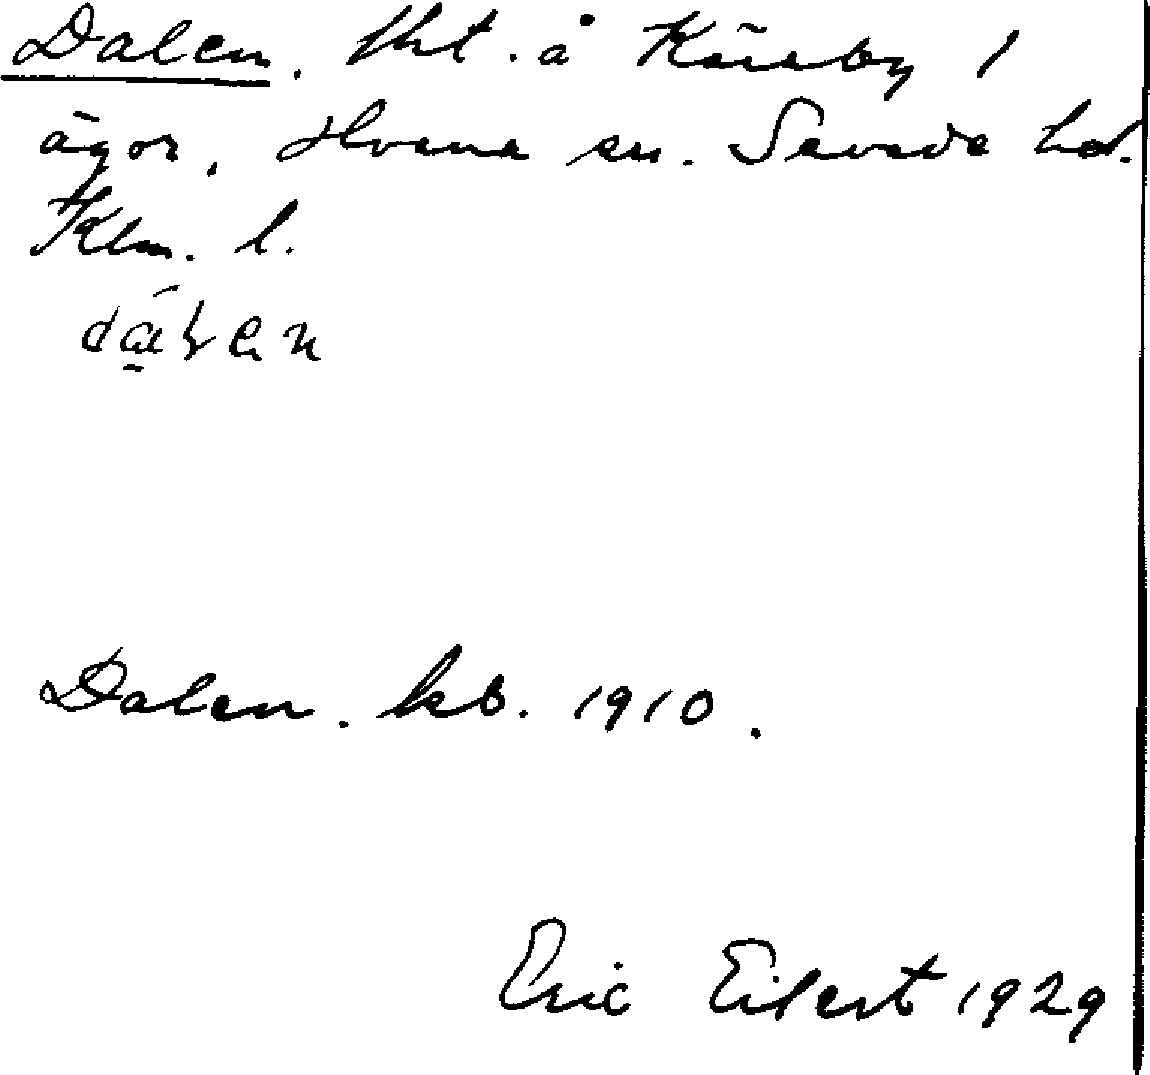 Dalen. tht. å Kärrby 1
ägor, Hvena sn. Sevede hd.
Klm. l.
Dalen. kb. 1910.
Eric Eilert 1929